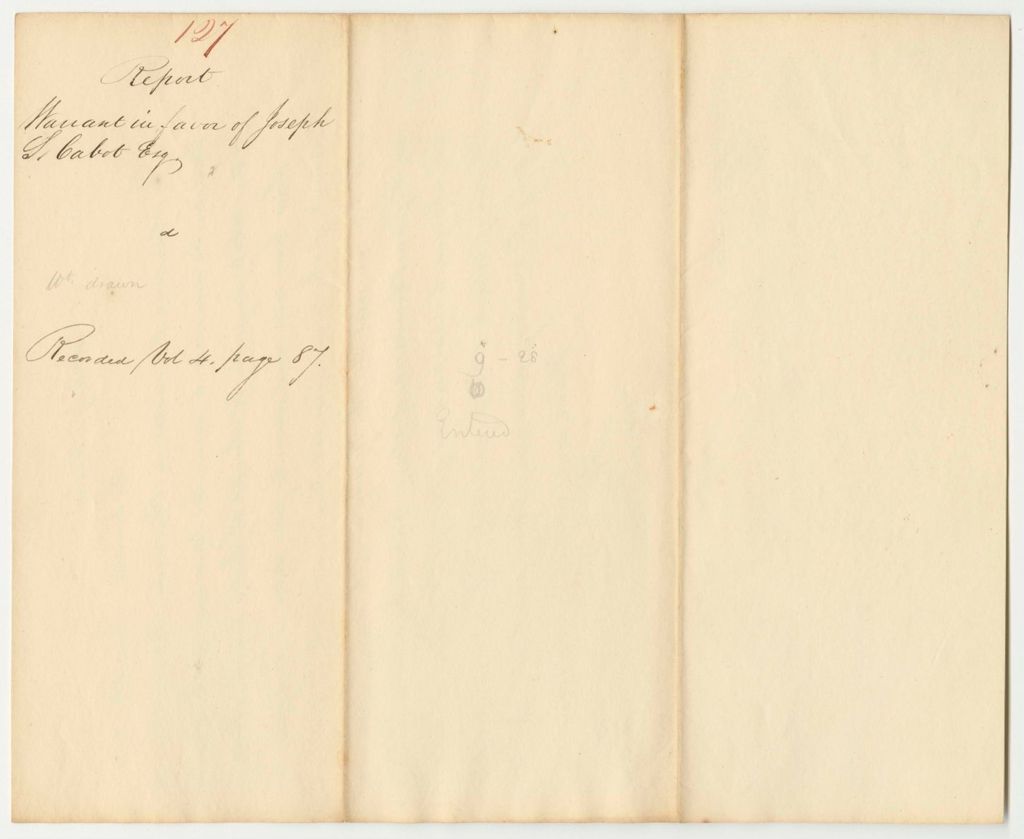 127
Report
Warrant in favor of Joseph
S. Cabot Esq
a
Wt. drawn
Recorded Vol 4. page 87.
9 - 28
Entered